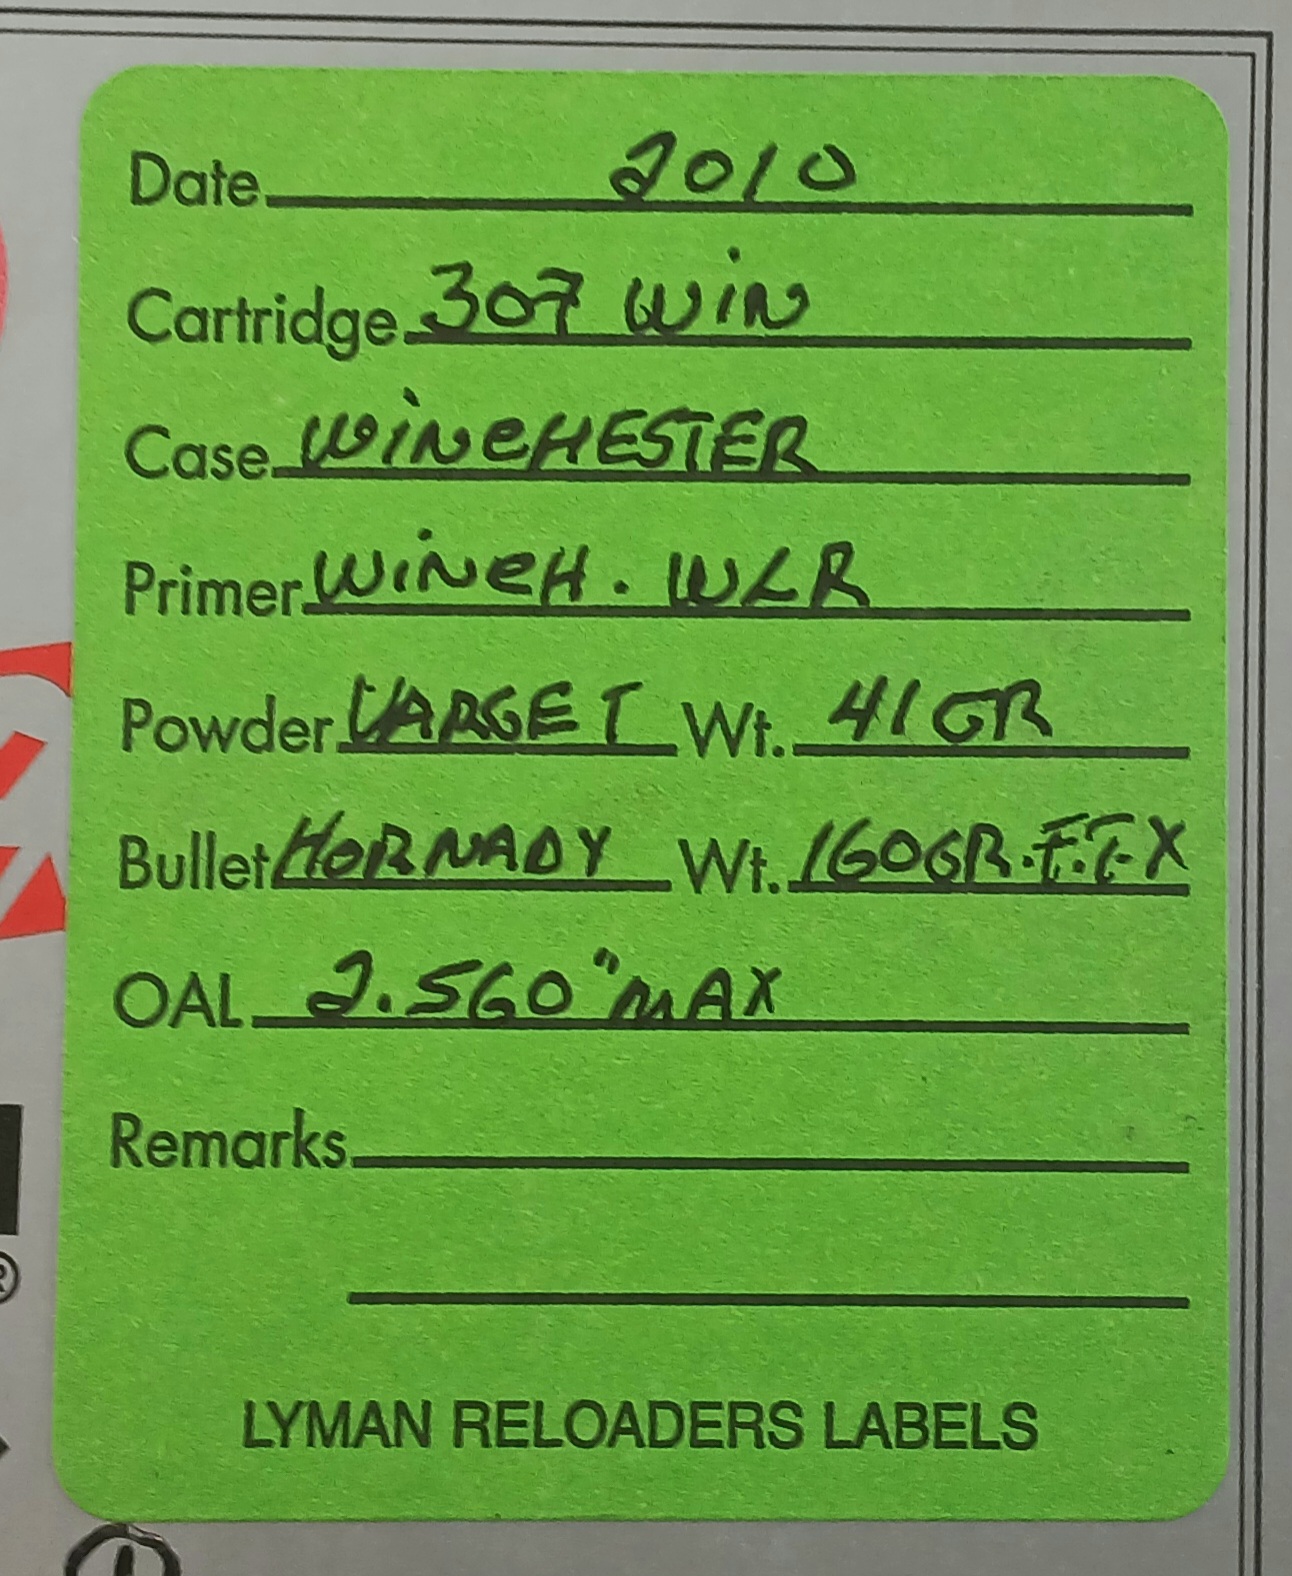 Date 2010
Cartridge 307 WIN
Case WINCHESTER
Primer WINCH. WLR
Powder VARGET Wt. 41 GR
Bullet HORNADY Wt. 160GR. F.T.X
OAL 2.560" MAX
Remarks
LYMAN RELOADERS LABELS
®